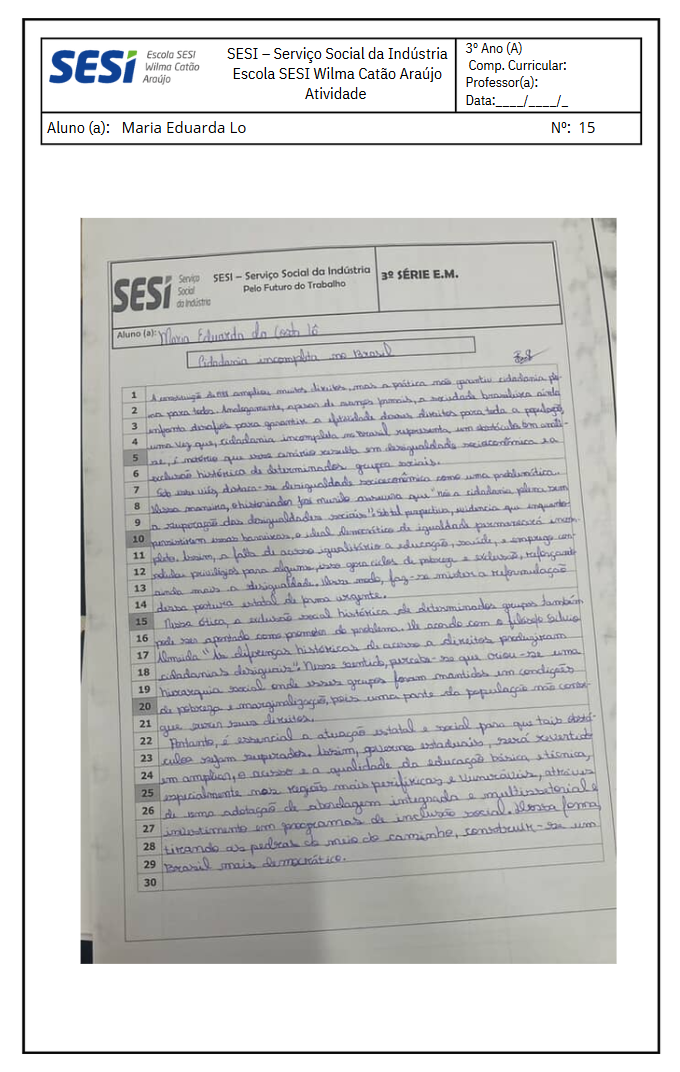 SESI
Escola SESI
Wilma Catão
Araújo
SESI – Serviço Social da Indústria
Escola SESI Wilma Catão Araújo
Atividade
3º Ano (A)
Comp. Curricular:
Professor(a):
Data:____/____/_
Aluno (a): Maria Eduarda Lo
Nº: 15
SESI
Serviço
Social
da Indústria
SESI – Serviço Social da Indústria
Pelo Futuro do Trabalho
3º SÉRIE E.M.
Aluno (a): Maria Eduarda da Costa Lô
Cidadania incompleta no Brasil
1 A constituição de 1988 ampliou muitos direitos, mas a prática não garantiu cidadania ple-
2 na para todos. Analogamente, apesar de avanços a sociedade brasileira ainda
3 enfrenta desafios para garantir a efetividade desses direitos para toda a população,
4 uma vez que, cidadania incompleta no Brasil representa, um obstáculo. Em análi-
5 se, é notório que esse cenário resulta em desigualdade socioeconômica e a
6 exclusão histórica de determinados grupos sociais.
7 Sob esse viés, destaca-se desigualdade socioeconômica como uma problemática.
8 Dessa maneira, o historiador José murilo assegura que "não a cidadania plena sem
9 a superação das desigualdades sociais". Sob tal perspectiva, evidencia que enquanto
10 persistirem essas barreiras, o ideal democrático de igualdade permanecerá incom-
11 pleto. Assim, a falta de acesso igualitário a educação, saúde, e emprego con-
12 privilégios para alguns, isso gera ciclos de pobreza e exclusão, reforçando
13 ainda mais a desigualdade. Desse modo, faz-se mister a reformulação
14 dessa postura estatal de forma urgente.
15 Nessa ótica, a exclusão social histórica de determinados grupos também
16 pode ser apontado como promotor do problema. De acordo com o filósofo Silvio
17 Almeida "As diferenças históricas de acesso a direitos produziram
18 cidadanias desiguais". Nesse sentido, percebe-se que criou-se uma
19 hierarquia social onde esses grupos foram mantidos em condições
20 de pobreza e marginalização, pois uma parte da população não conse-
21 gue seus direitos.
22 Portanto, é essencial a atuação estatal e social para que tais obstá-
23 culos sejam superados. Assim, governos estaduais, será revertido
24 em ampliar, o acesso e a qualidade da educação básica e técnica,
25 especialmente nas regiões mais periféricas e vulneráveis, através
26 de uma adotação de abordagem integrada e multissetorial e
27 investimento em programas de inclusão social. Dessa forma,
28 tirando as pedras do meio do caminho, construir-se um
29 Brasil mais democrático.
30